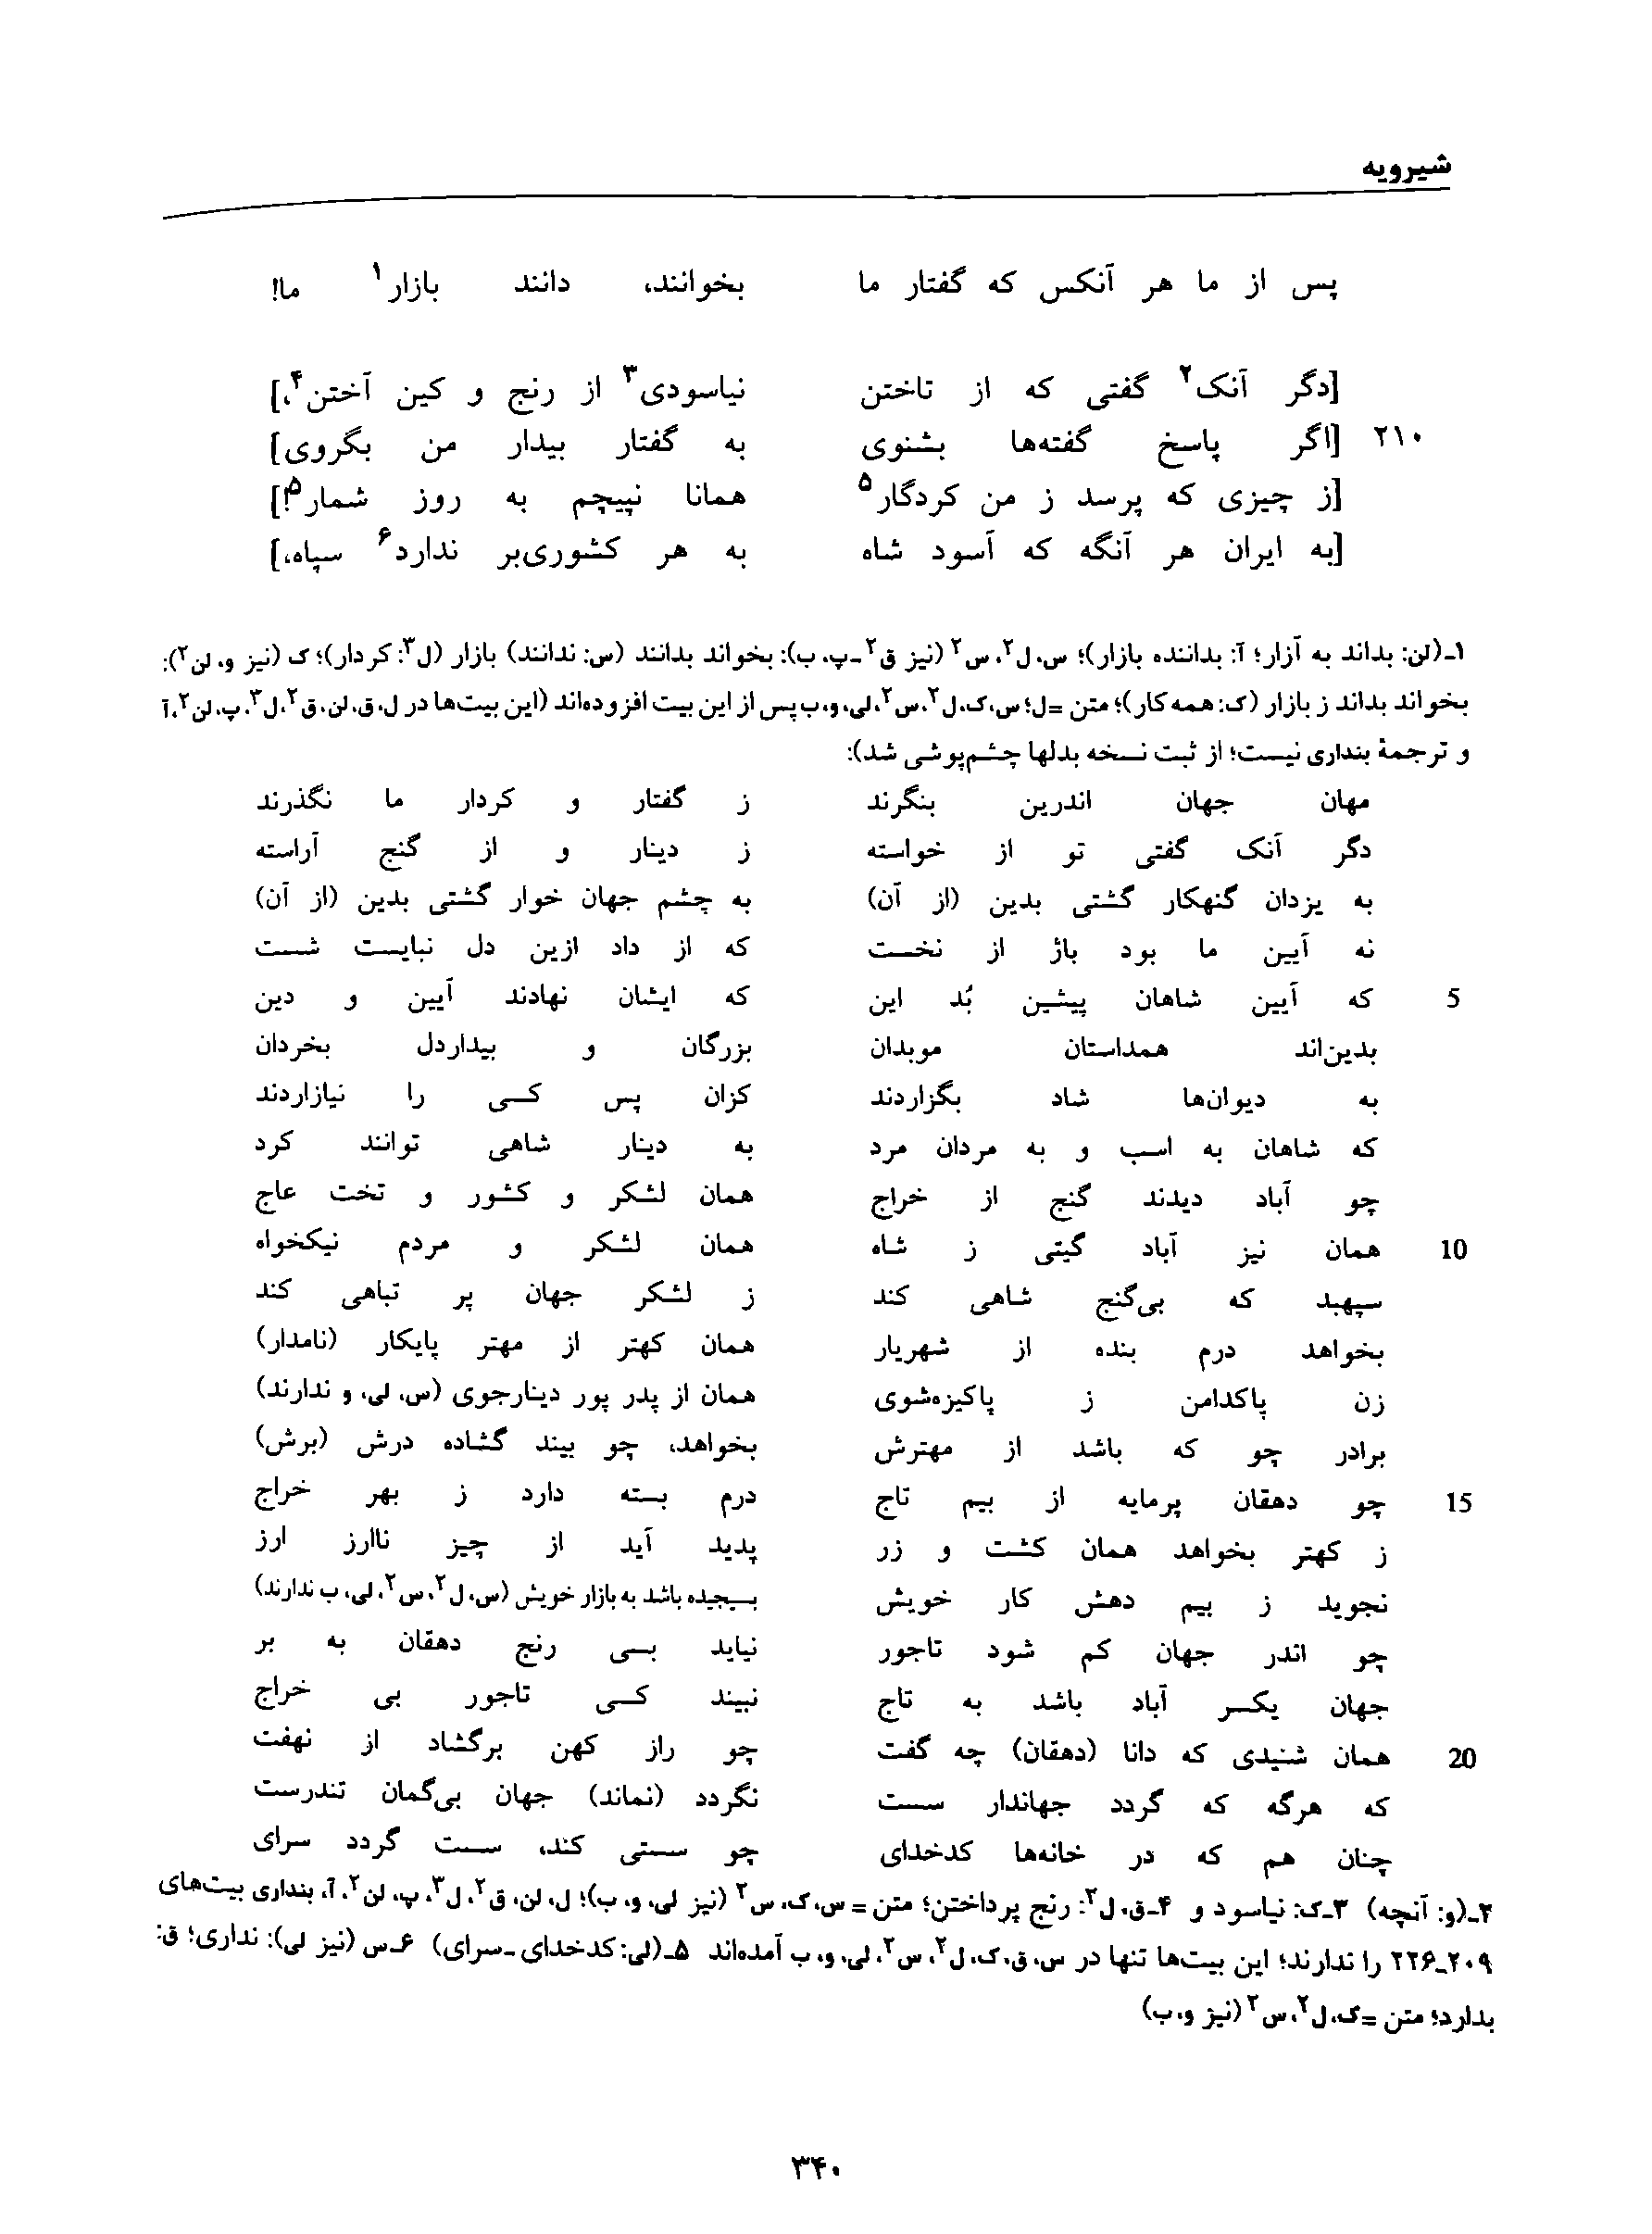 شیرویه
پس از ما هر آنکس که گفتار ما بخوانند، دانند بازار۱ ما!
[دگر آنک۲ گفتی که از تاختن نیاسودی۳ از رنج و کین آختن۴،]
۲۱۰ [اگر پاسخ گفته‌ها بشنوی به گفتار بیدار من بگروی]
[ز چیزی که پرسد ز من کردگار۵ همانا نپیچم به روز شمار۵!]
[به ایران هر آنگه که آسود شاه به هر کشوری‌بر ندارد۶ سپاه،]
۱ـ(لن: بداند به آزار؛ آ: بداننده بازار)؛ س، ل۲، س۲ (نیز ق۲ـپ، ب): بخواند بدانند (س: ندانند) بازار (ل۳: کردار)؛ ک (نیز و، لن۲):
بخواند بداند ز بازار (ک: همه کار)؛ متن =ل؛ س، ک، ل۲، س۲، لی، و، ب پس از این بیت افزوده‌اند (این بیت‌ها در ل، ق، لن، ق۲، ل۳، پ، لن۲، آ
و ترجمهٔ بنداری نیست؛ از ثبت نسخه بدلها چشم‌پوشی شد):
مهان جهان اندرین بنگرند ز گفتار و کردار ما نگذرند
دگر آنک گفتی تو از خواسته ز دینار و از گنج آراسته
به یزدان گنهکار گشتی بدین (از آن) به چشم جهان خوار گشتی بدین (از آن)
نه آیین ما بود باژ از نخست که از داد ازین دل نبایست شست
5 که آیین شاهان پیشین بُد این که ایشان نهادند آیین و دین
بدین‌اند همداستان موبدان بزرگان و بیداردل بخردان
به دیوان‌ها شاد بگزاردند کزان پس کسی را نیازاردند
که شاهان به اسب و به مردان مرد به دینار شاهی توانند کرد
چو آباد دیدند گنج از خراج همان لشکر و کشور و تخت عاج
10 همان نیز آباد گیتی ز شاه همان لشکر و مردم نیکخواه
سپهبد که بی‌گنج شاهی کند ز لشکر جهان پر تباهی کند
بخواهد درم بنده از شهریار همان کهتر از مهتر پایکار (نامدار)
زن پاکدامن ز پاکیزه‌شوی همان از پدر پور دینارجوی (س، لی، و ندارند)
برادر چو که باشد از مهترش بخواهد، چو بیند گشاده درش (برش)
15 چو دهقان پرمایه از بیم تاج درم بسته دارد ز بهر خراج
ز کهتر بخواهد همان کشت و زر پدید آید از چیز ناارز ارز
نجوید ز بیم دهش کار خویش بسیجیده باشد به بازار خویش (س، ل۲، س۲، لی، ب ندارند)
چو اندر جهان کم شود تاجور نیاید بسی رنج دهقان به بر
جهان یکسر آباد باشد به تاج نبیند کسی تاجور بی خراج
20 همان شنیدی که دانا (دهقان) چه گفت چو راز کهن برگشاد از نهفت
که هرگه که گردد جهاندار سست نگردد (نماند) جهان بی‌گمان تندرست
چنان هم که در خانه‌ها کدخدای چو سستی کند، سست گردد سرای
۲ـ(و: آنچه) ۳ـک: نیاسود و ۴ـق، ل۲: رنج پرداختن؛ متن = س، ک، س۲ (نیز لی، و، ب)؛ ل، لن، ق۲، ل۳، پ، لن۲، آ، بنداری بیت‌های
۲۰۹ـ۲۲۶ را ندارند؛ این بیت‌ها تنها در س، ق، ک، ل۲، س۲، لی، و، ب آمده‌اند ۵ـ(لی: کدخدای ـسرای) ۶ـس (نیز لی): نداری؛ ق:
بدارد؛ متن =ک، ل۲، س۲ (نیز و، ب)
۳۴۰